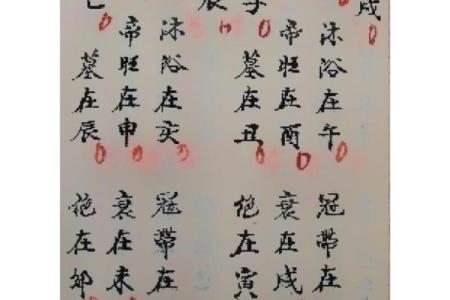 戌
沐浴在午
帝旺在酉
墓在丑
沐浴在亥
帝旺在申
墓在辰
冠帶在
衰在戌
絕在寅
冠帶在
衰在未
絕在卯